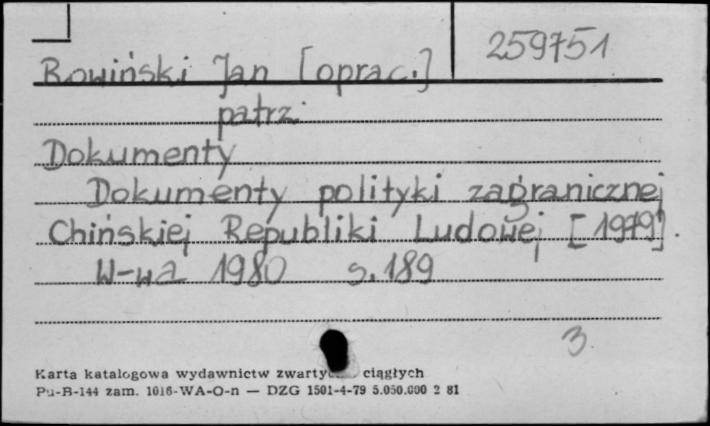 259751
Rowiński Jan [oprac.]
patrz:
Dokumenty
Dokumenty polityki zagranicznej
Chińskiej Republiki Ludowej [1979].
W-wa 1980 s. 189
3
Karta katalogowa wydawnictw zwartyc ciągłych
Pu-B-144 zam. 1016-WA-O-n — DZG 1501-4-79 5.050.000 2 81